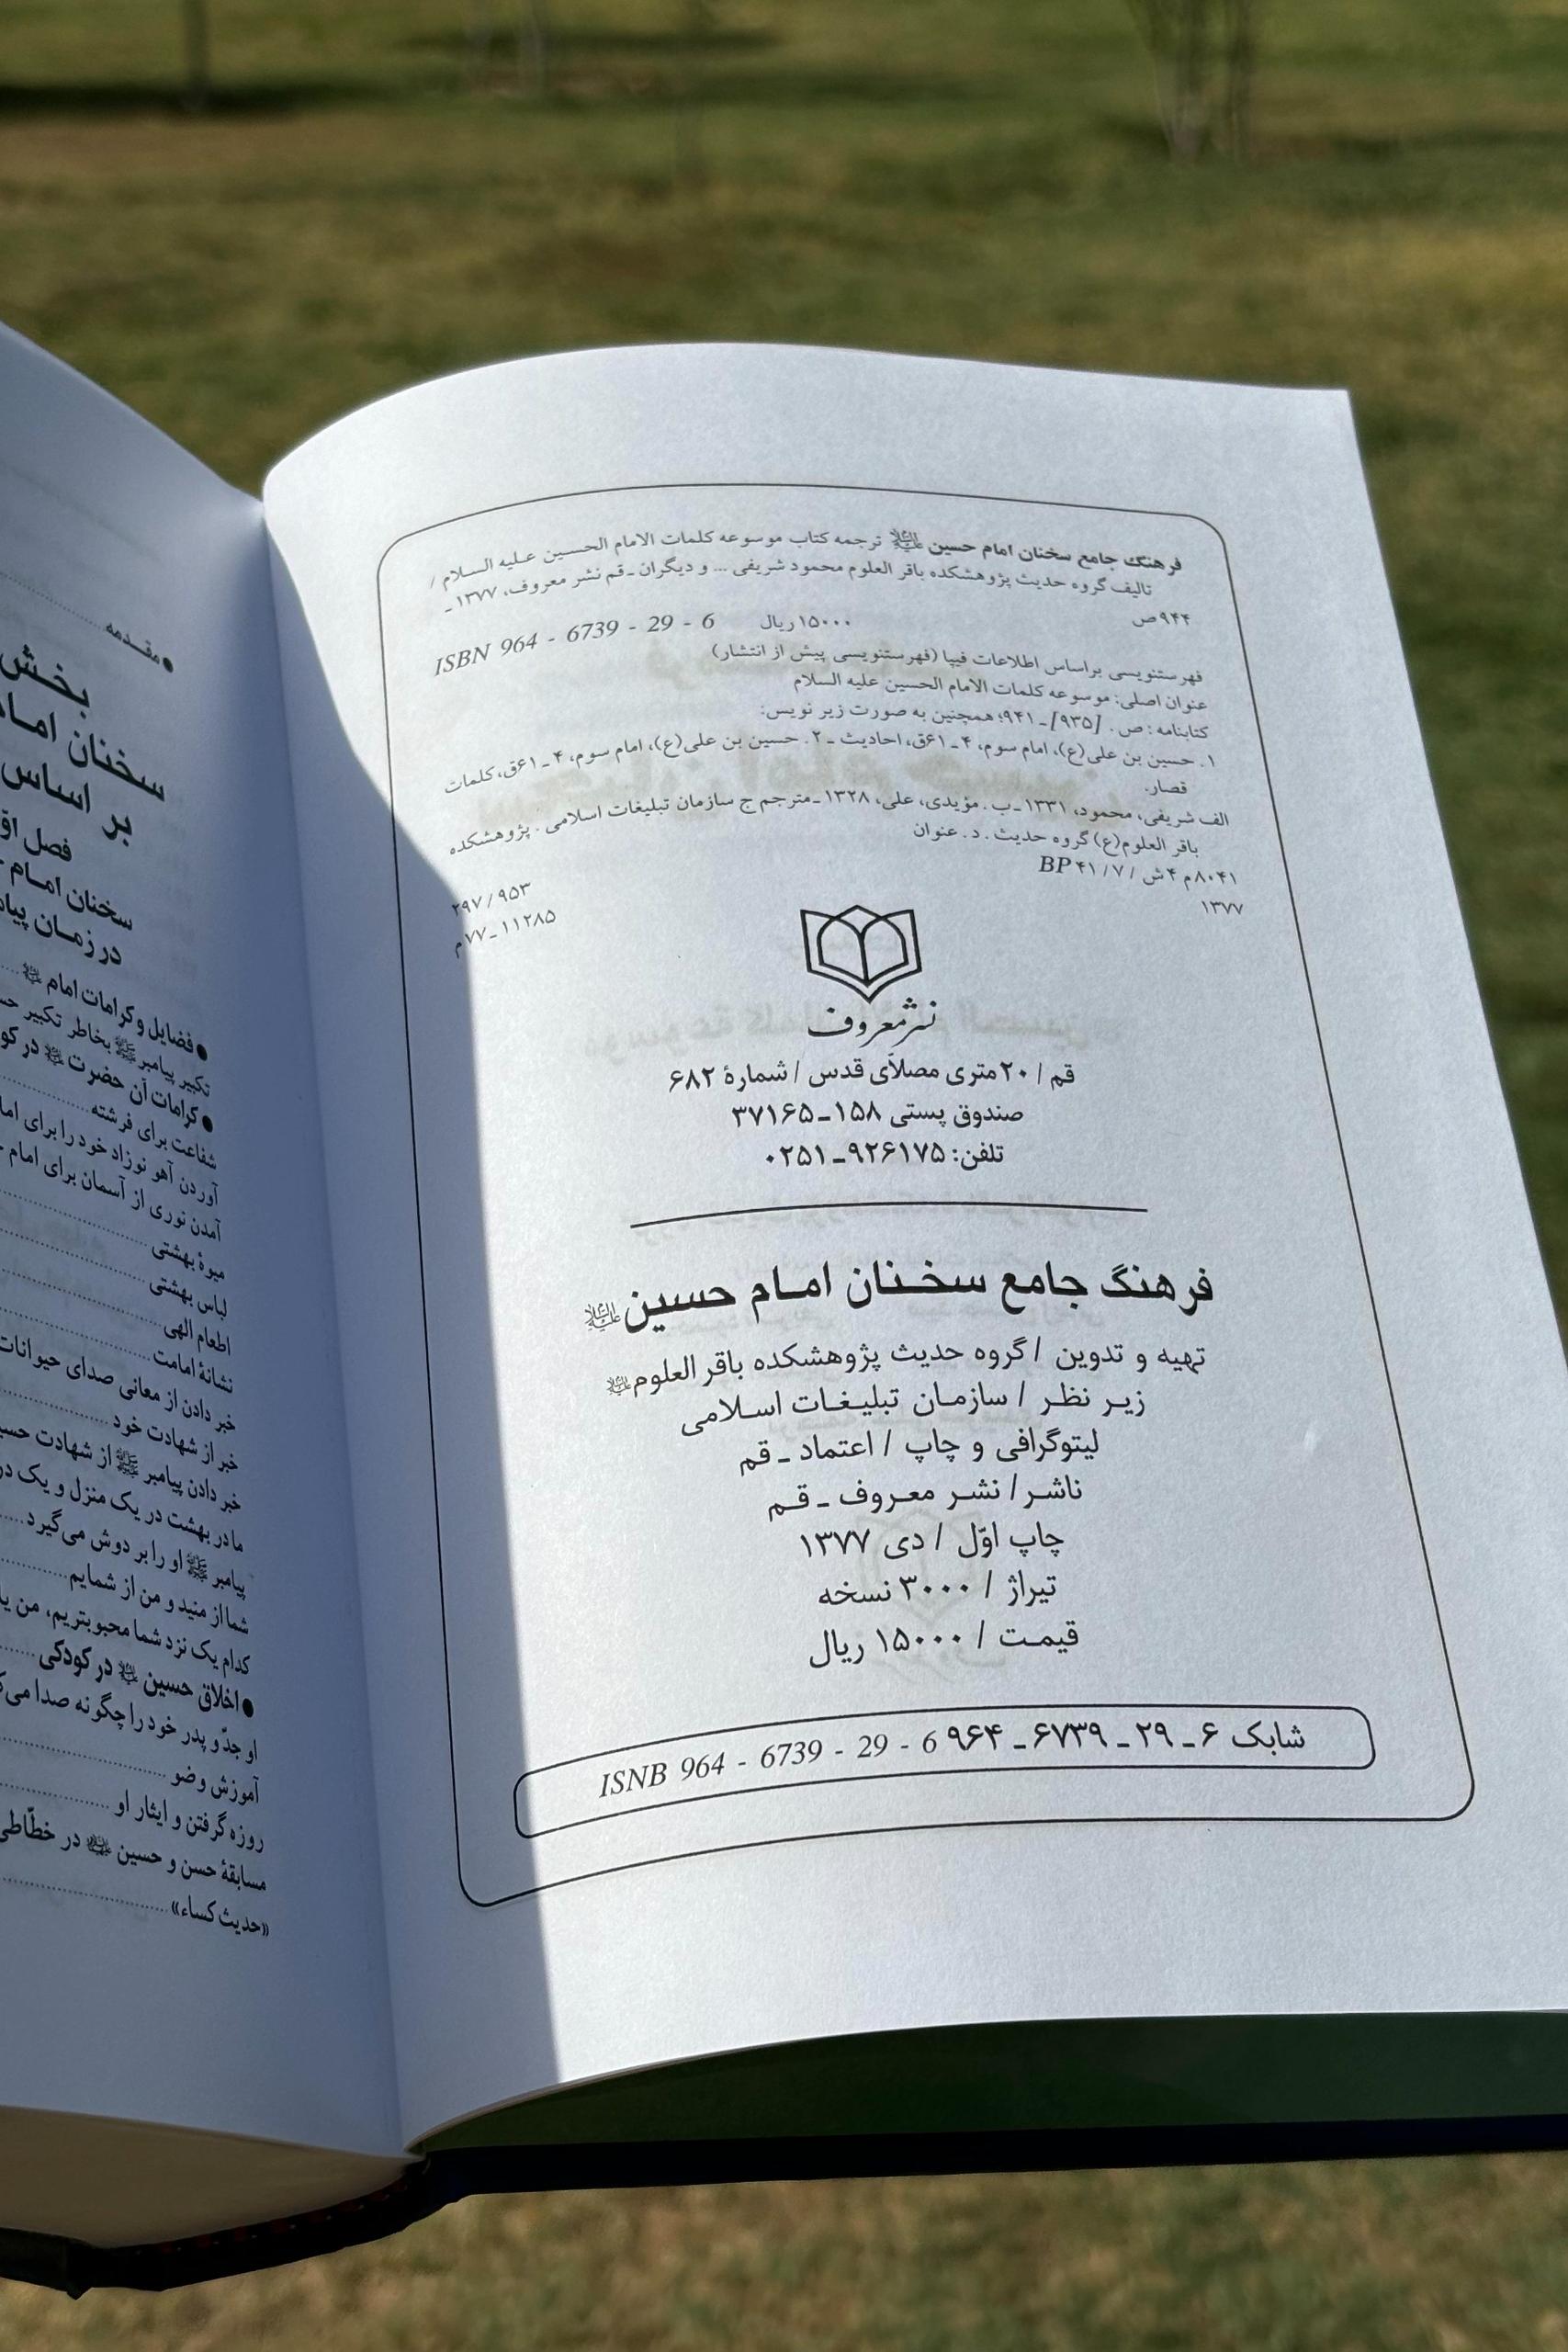 فرهنگ جامع سخنان امام حسین علیه‌السلام ترجمه کتاب موسوعه کلمات الامام الحسین علیه السلام /
تالیف گروه حدیث پژوهشکده باقر العلوم محمود شریفی ... و دیگران ـ قم نشر معروف، ۱۳۷۷ ـ
۹۴۴ ص
۱۵۰۰۰ ریال ISBN 964 - 6739 - 29 - 6
فهرستنویسی براساس اطلاعات فیپا (فهرستنویسی پیش از انتشار)
عنوان اصلی: موسوعه کلمات الامام الحسین علیه السلام
کتابنامه : ص . [۹۳۵] ـ ۹۴۱؛ همچنین به صورت زیر نویس:
۱. حسین بن علی(ع)، امام سوم، ۴ ـ ۶۱ق، احادیث ـ ۲ . حسین بن علی(ع)، امام سوم، ۴ ـ ۶۱ق، کلمات
قصار.
الف شریفی، محمود، ۱۳۳۱ ـ ب . مؤیدی، علی، ۱۳۲۸ ـ مترجم ج سازمان تبلیغات اسلامی . پژوهشکده
باقر العلوم(ع) گروه حدیث . د . عنوان
۸۰۴۱م ۴ش / ۷ / ۴۱ BP
۲۹۷ / ۹۵۳
۱۳۷۷
۱۱۲۸۵ ـ ۷۷م
نشر معروف
قم / ۲۰ متری مصلاّی قدس / شمارهٔ ۶۸۲
صندوق پستی ۱۵۸ ـ ۳۷۱۶۵
تلفن: ۹۲۶۱۷۵ ـ ۰۲۵۱
فرهنگ جامع سخنان امام حسین علیه‌السلام
تهیه و تدوین / گروه حدیث پژوهشکده باقر العلوم علیه‌السلام
زیر نظر / سازمان تبلیغات اسلامی
لیتوگرافی و چاپ / اعتماد ـ قم
ناشر / نشر معروف ـ قم
چاپ اوّل / دی ۱۳۷۷
تیراژ / ۳۰۰۰ نسخه
قیمت / ۱۵۰۰۰ ریال
شابک ۶ ـ ۲۹ ـ ۶۷۳۹ ـ ۹۶۴ ISNB 964 - 6739 - 29 - 6
● مقدمه
بخش
سخنان امام
بر اساس
فصل
سخنان امام
در زمان
● فضایل و کرامات امام علیه‌السلام
تکبیر پیامبر ﷺ بخاطر تکبیر
● کرامات آن حضرت علیه‌السلام در
شفاعت برای فرشته
آوردن آهو نوزاد خود را برای
آمدن نوری از آسمان برای امام
میوهٔ بهشتی
لباس بهشتی
اطعام الهی
نشانهٔ امامت
خبر دادن از معانی صدای حیوانات
خبر از شهادت خود
خبر دادن پیامبر ﷺ از شهادت
ما در بهشت در یک منزل و یک
پیامبر ﷺ او را بر دوش می‌گیرد
شما از منید و من از شمایم
کدام یک نزد شما محبوبتریم، من
● اخلاق حسین علیه‌السلام در کودکی
او جدّ و پدر خود را چگونه صدا
آموزش وضو
روزه گرفتن و ایثار او
مسابقهٔ حسن و حسین علیهماالسلام در خطّاطی
«حدیث کساء»